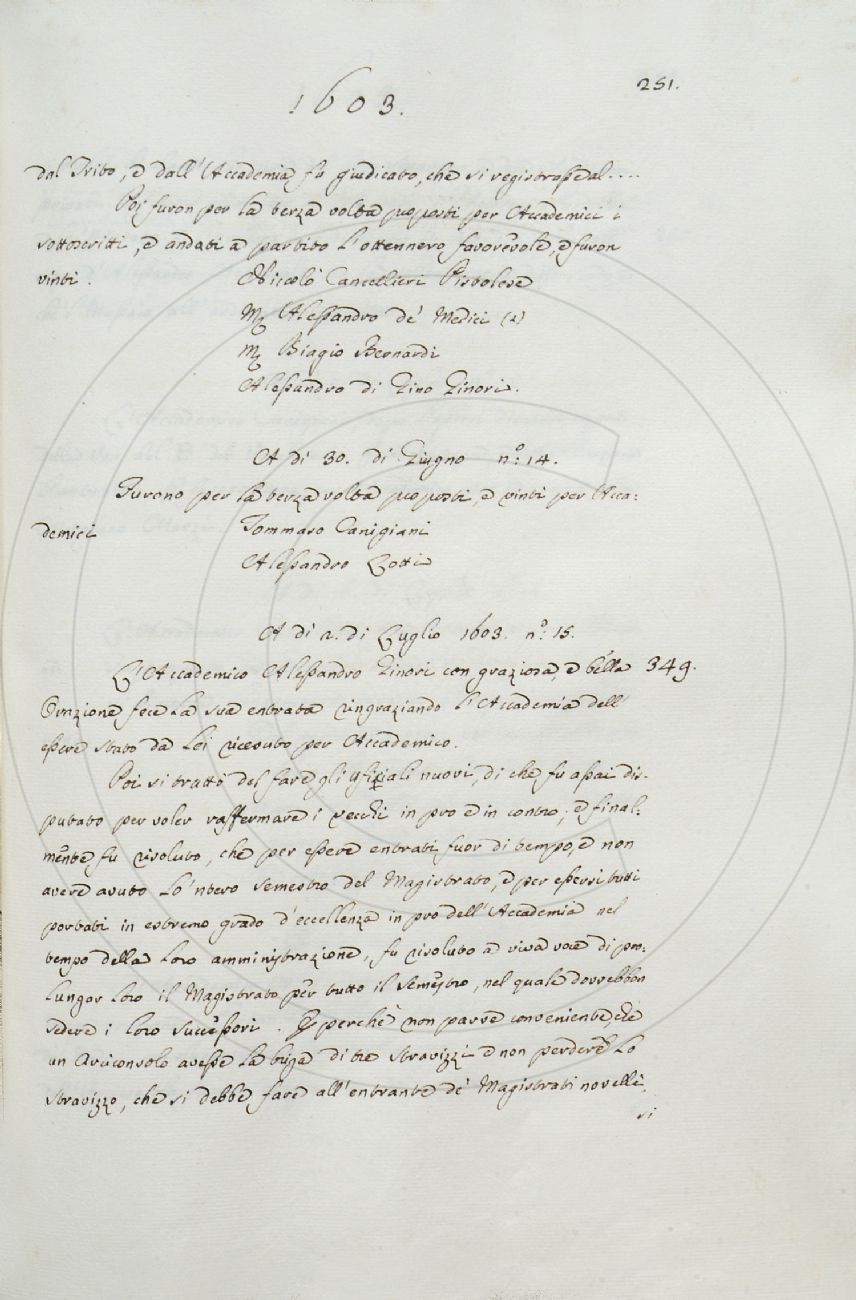 251.
1603.
dal Trito, e dall'Accademia fu giudicato, che si registrasse al....
Poi furon per la terza volta proposti per Accademici i
sottoscritti, e andati a partito l'ottennero favorevole, e furon
vinti. Niccolò Cancellieri Pistolese
M. Alessandro de' Medici (2)
M. Biagio Bernardi
Alessandro di Gino Ginori.
A dì 30. di Giugno n.º 14.
Furono per la terza volta proposti, e vinti per Acca:
demici Tommaso Canigiani
Alessandro Zotti
A dì 2. di Luglio 1603. n.º 15.
L'Accademico Alessandro Ginori con graziosa, e bella 349.
Orazione fece la sua entrata ringraziando l'Accademia dell'
essere stato da lei ricevuto per Accademico.
Poi si trattò del fare gli ufiziali nuovi, di che fu assai dis-
putato per voler raffermare i vecchi in pro e in contro; e final:
mente fu risoluto, che per essere entrati fuor di tempo, e non
avere avuto lo 'ntero semestro del Magistrato, e per essersi tutti
portati in estremo grado d'eccellenza in pro dell'Accademia nel
tempo della loro amministrazione, fu risoluto a viva voce di pro:
lungar loro il Magistrato per tutto il semestro, nel quale dovrebbon
sedere i loro successori. E perchè non parve conveniente, che
un Arciconsolo avesse la briga di tre stravizzi e non perdere lo
stravizzo, che si debbe fare all'entrante de' Magistrati novelli,
si